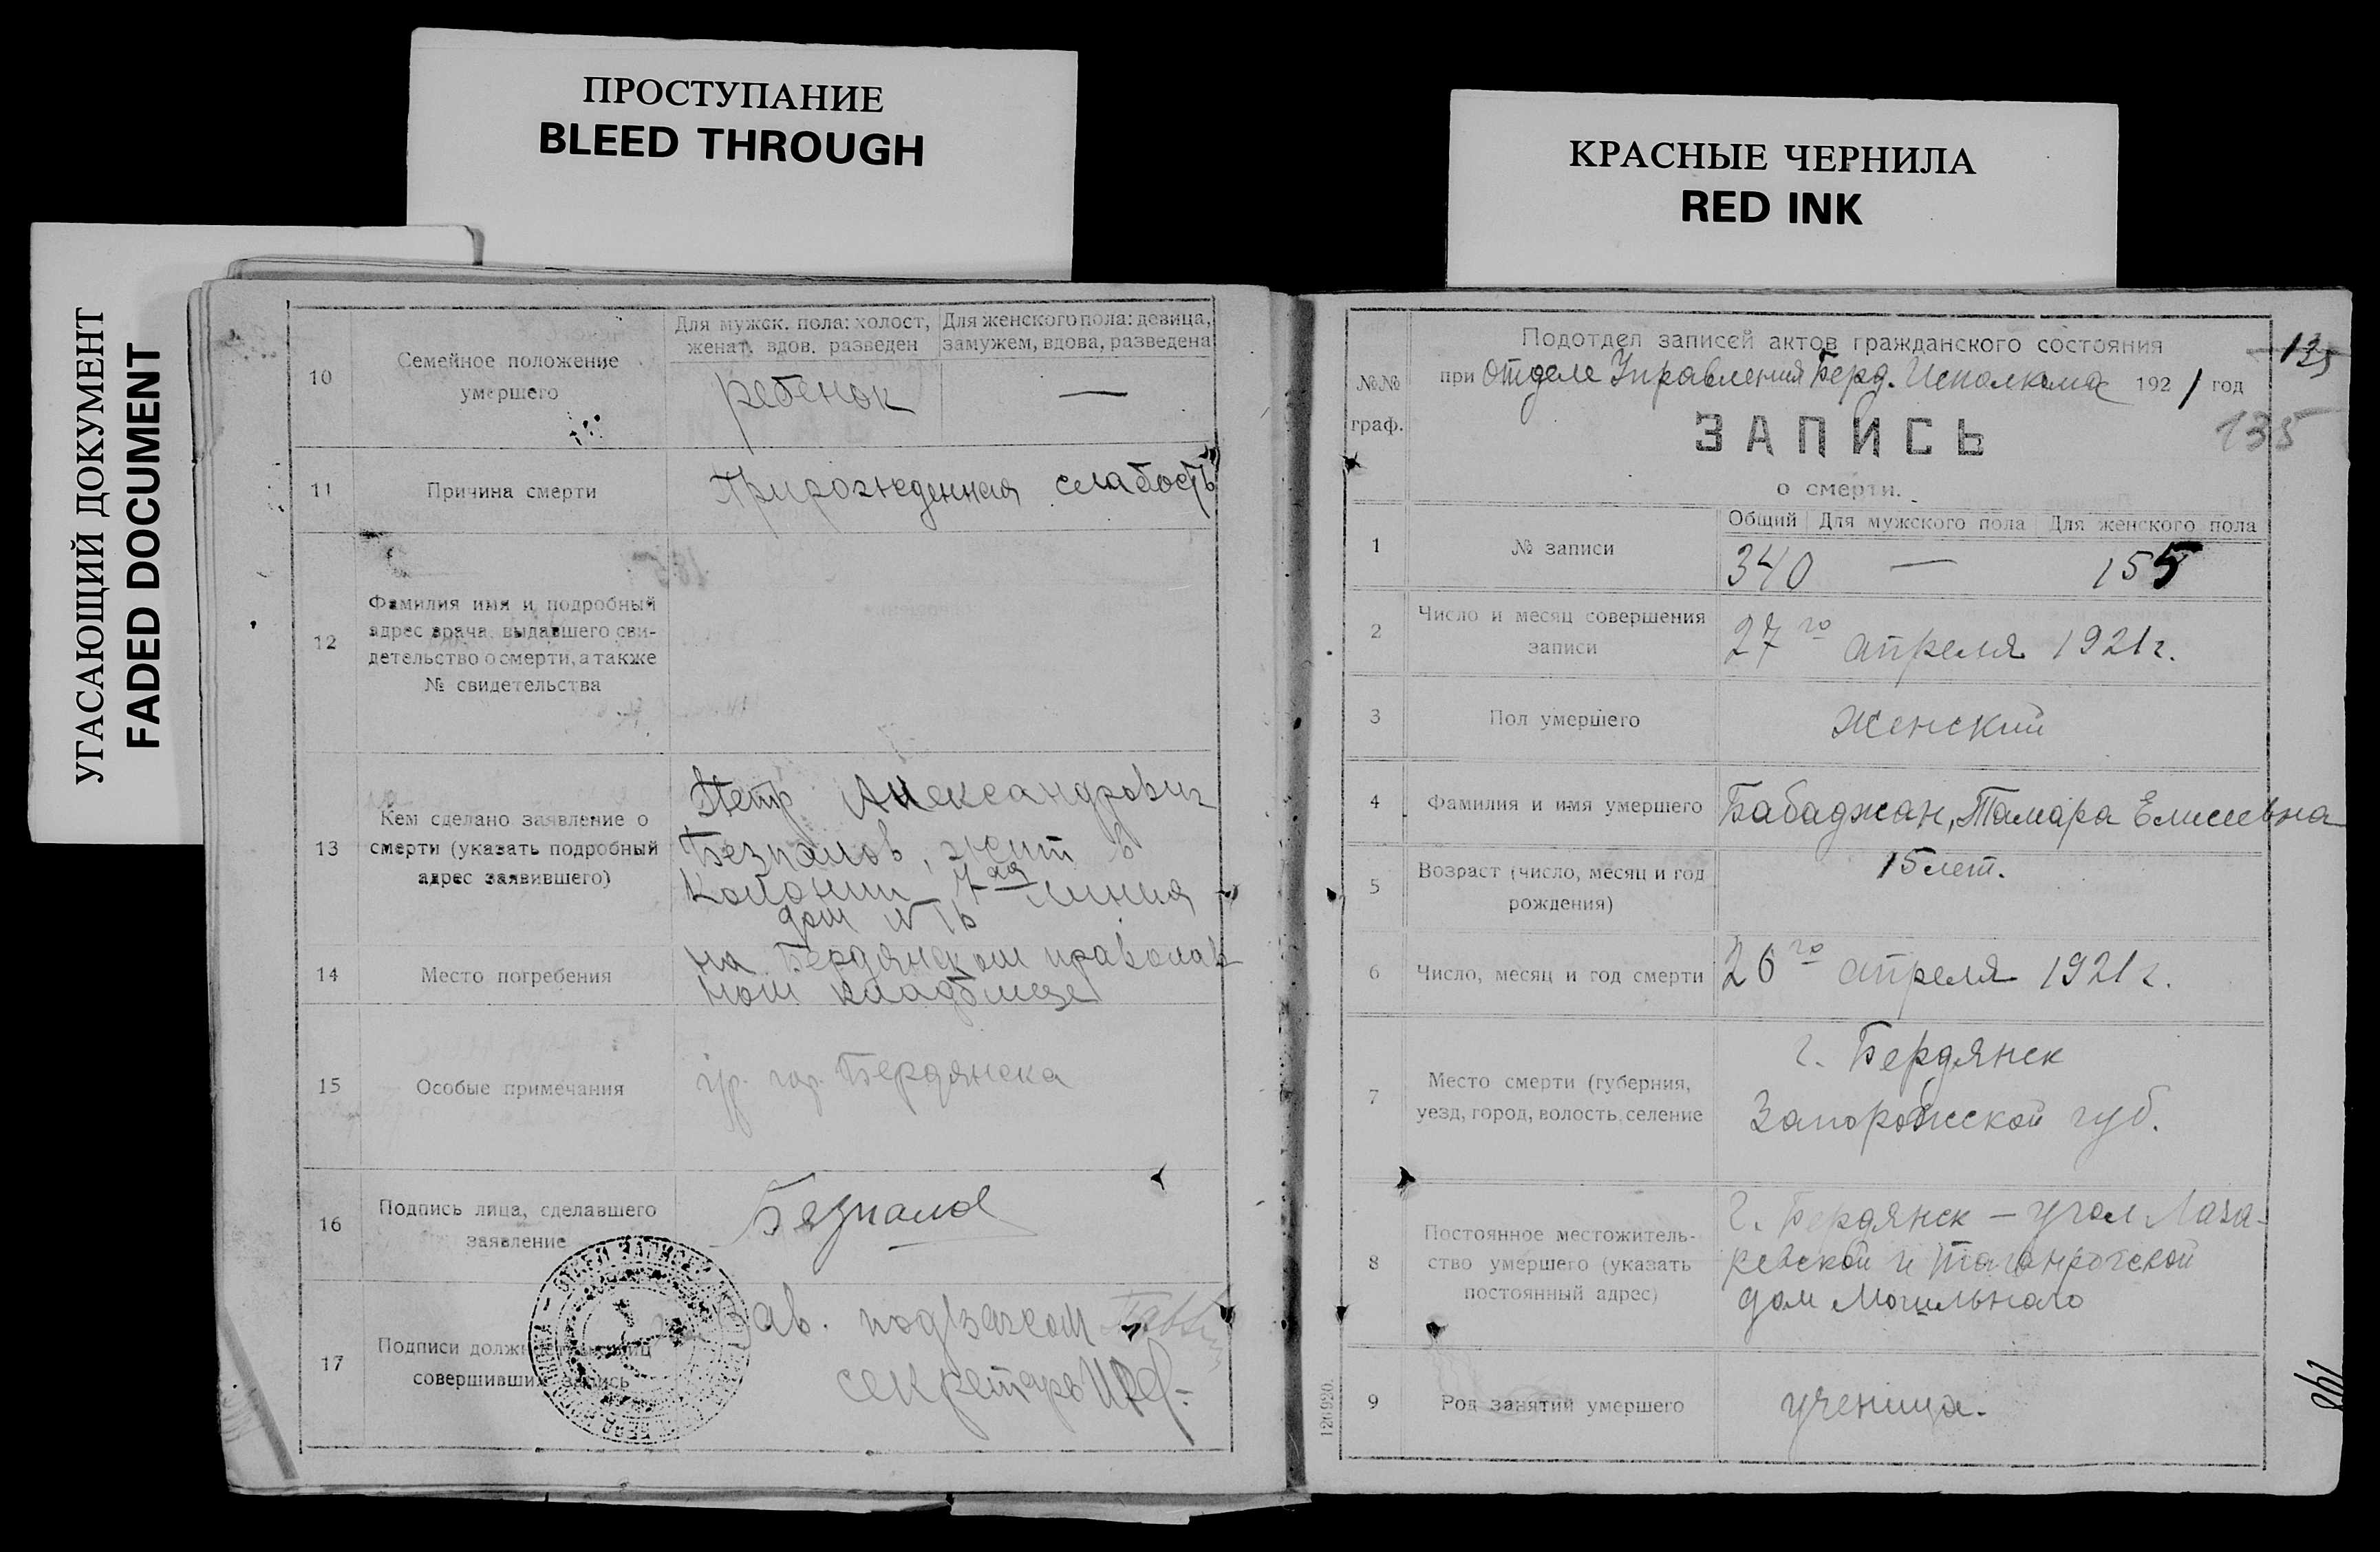 ПРОСТУПАНИЕ
BLEED THROUGH
КРАСНЫЕ ЧЕРНИЛА
RED INK
УГАСАЮЩИЙ ДОКУМЕНТ
FADED DOCUMENT
10
Семейное положение
умершего
Для мужск. пола: холост,
женат, вдов. разведен
Для женского пола: девица,
замужем, вдова, разведена
ребенок
—
11
Причина смерти
Прирожденная слабость
12
Фамилия имя и подробный
адрес врача, выдавшего сви-
детельство о смерти, а также
№ свидетельства
13
Кем сделано заявление о
смерти (указать подробный
адрес заявившего)
Петр Александрович
Безпалов, жит в
Колонии 7ая линия
дом №
14
Место погребения
на Бердянском православ
ном кладбище
15
Особые примечания
гр. гор. Бердянска
16
Подпись лица, сделавшего
заявление
Безпалов
17
Подписи должностных лиц
совершивших запись
Зав. подзагсом
секретарь
№№
граф.
Подотдел записей актов гражданского состояния
при Отделе Управления Берд. Исполкома 1921 год
125
135
ЗАПИСЬ
о смерти.
1
№ записи
Общий
Для мужского пола
Для женского пола
340
—
155
2
Число и месяц совершения
записи
27го апреля 1921 г.
3
Пол умершего
Женский
4
Фамилия и имя умершего
Бабаджан, Тамара Елисеевна
5
Возраст (число, месяц и год
рождения)
15 лет.
6
Число, месяц и год смерти
26го апреля 1921 г.
7
Место смерти (губерния,
уезд, город, волость, селение
г. Бердянск
Запорожской губ.
8
Постоянное местожитель-
ство умершего (указать
постоянный адрес)
г. Бердянск — угол Маза-
ревской и Таганрогской
дом Могильного
9
Род занятий умершего
ученица.
126920.